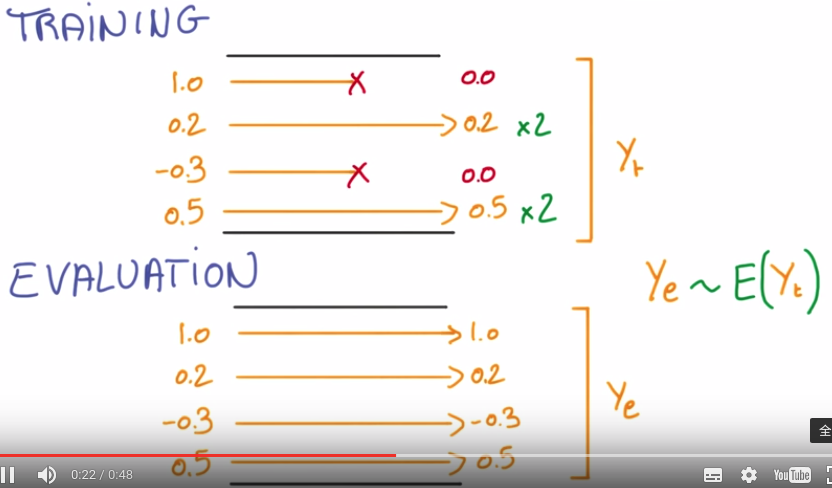 TRAINING
1.0 X 0.0
0.2 0.2 x2
-0.3 X 0.0
0.5 0.5 x2
Yt
EVALUATION
Ye ~ E(Yt)
1.0 1.0
0.2 0.2
-0.3 -0.3
0.5 0.5
Ye
全
0:22 / 0:48
YouTube